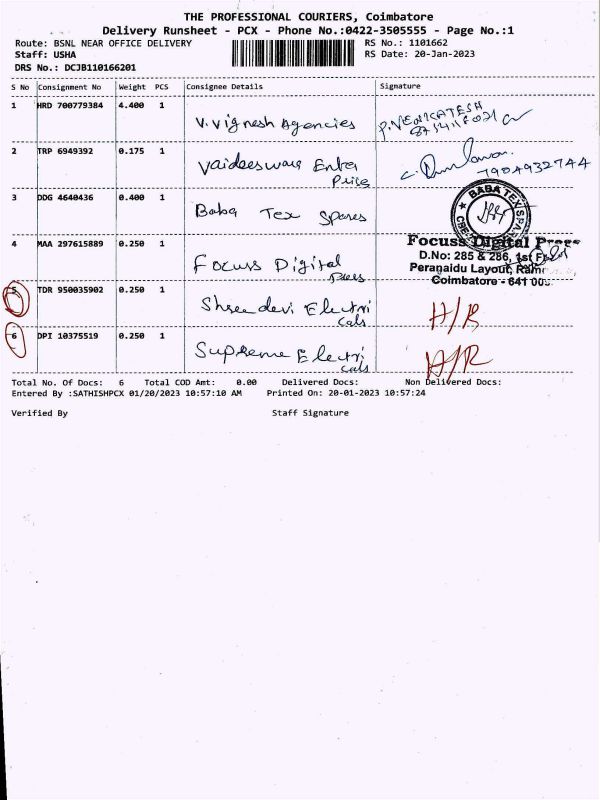 THE PROFESSIONAL COURIERS, Coimbatore
Delivery Runsheet - PCX - Phone No.:0422-3505555 - Page No.:1
Route: BSNL NEAR OFFICE DELIVERY RS No.: 1101662
Staff: USHA RS Date: 20-Jan-2023
DRS No.: DCJB110166201
S No Consignment No Weight PCS Consignee Details Signature
1 HRD 700779384 4.400 1 V.Vignesh Agencies P.VENKATESH
2 TRP 6949392 0.175 1 Vaideeswara Enter
Prices 7904932744
3 DDG 4640436 0.400 1 Baba Tex Spares BABA TEX SPARES
4 MAA 297615889 0.250 1 Focuss Digital
Press
Focuss Digital Press
D.No: 285 & 286, 1st
Peranaidu Layout,
Coimbatore - 641
5 TDR 950035902 0.250 1 Shreedevi Electri
cals H/R
6 DPI 10375519 0.250 1 Supreme Electri
cals H/R
Total No. Of Docs: 6 Total COD Amt: 0.00 Delivered Docs: Non Delivered Docs:
Entered By :SATHISHPCX 01/20/2023 10:57:10 AM Printed On: 20-01-2023 10:57:24
Verified By Staff Signature